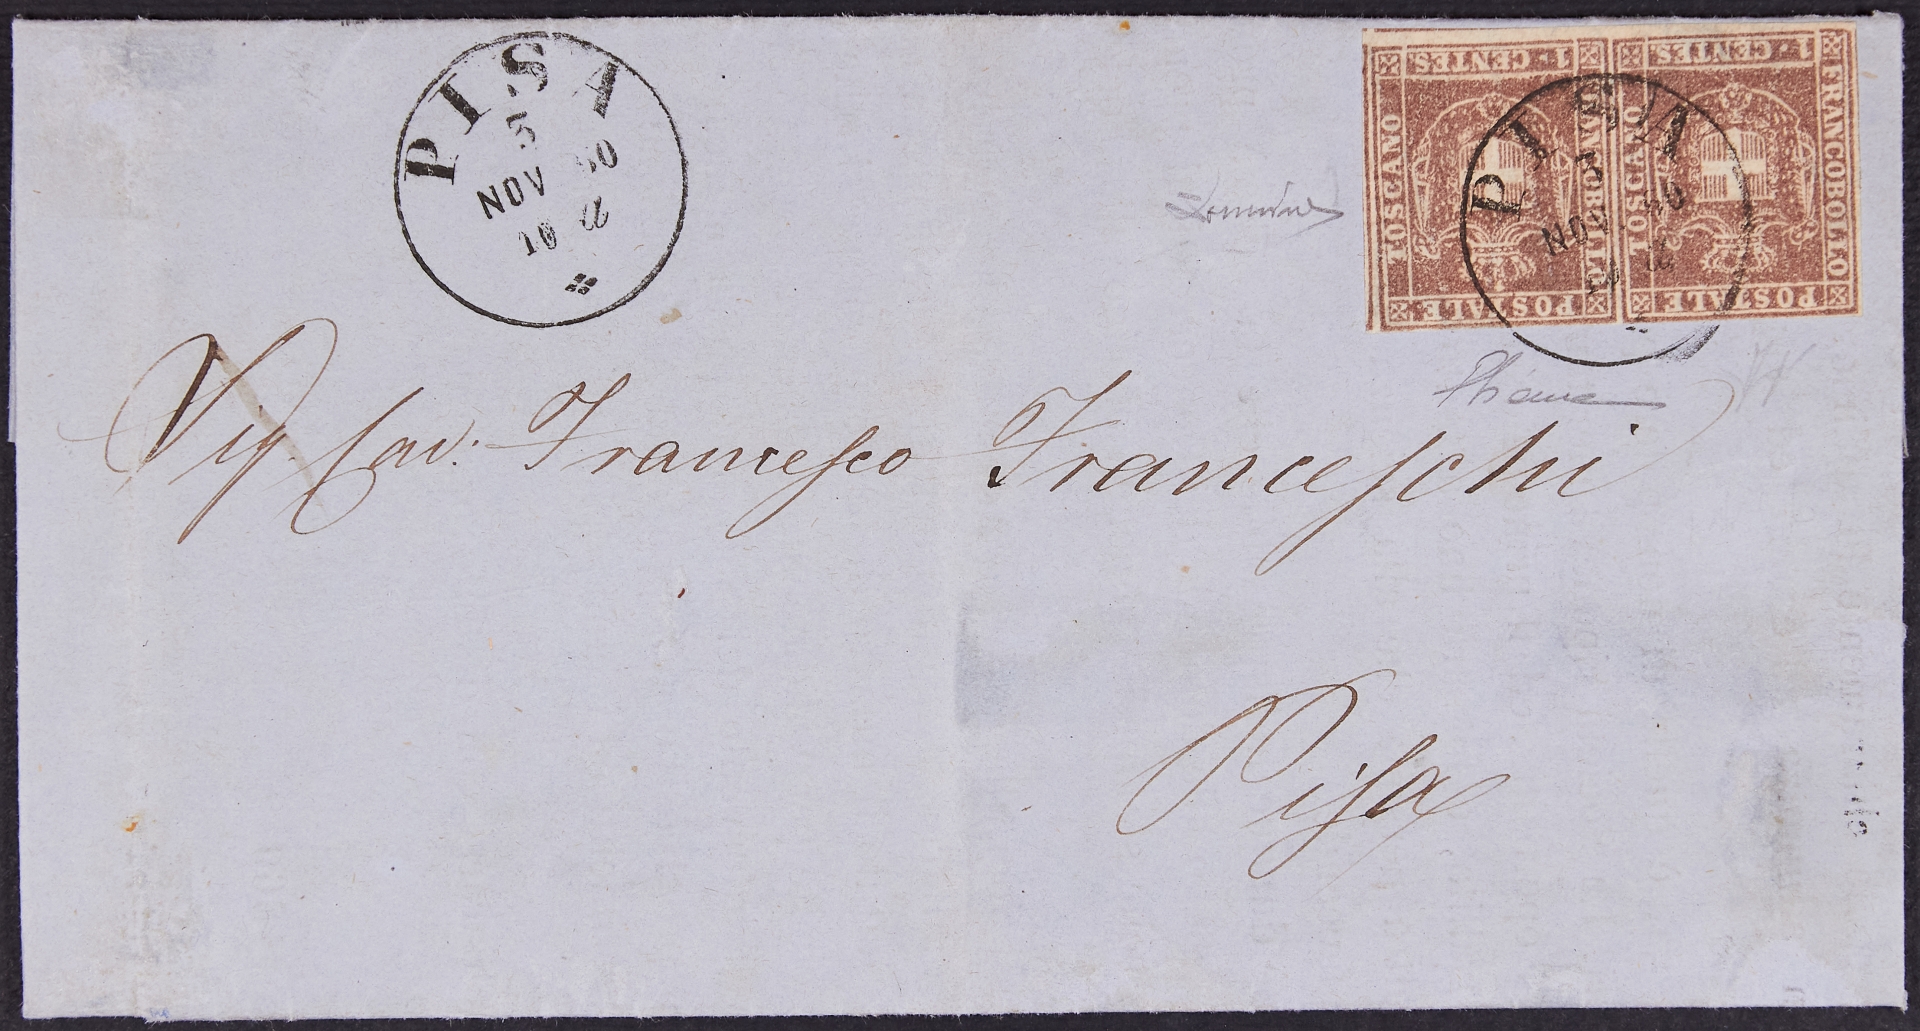 PISA
3
NOV 60
10
1 CENTES.
FRANCOBOLLO
POSTALE
TOSCANO
1 CENTES.
FRANCOBOLLO
POSTALE
TOSCANO
PISA
3
NOV 60
Sig. Cav. Francesco Franceschi
Pisa